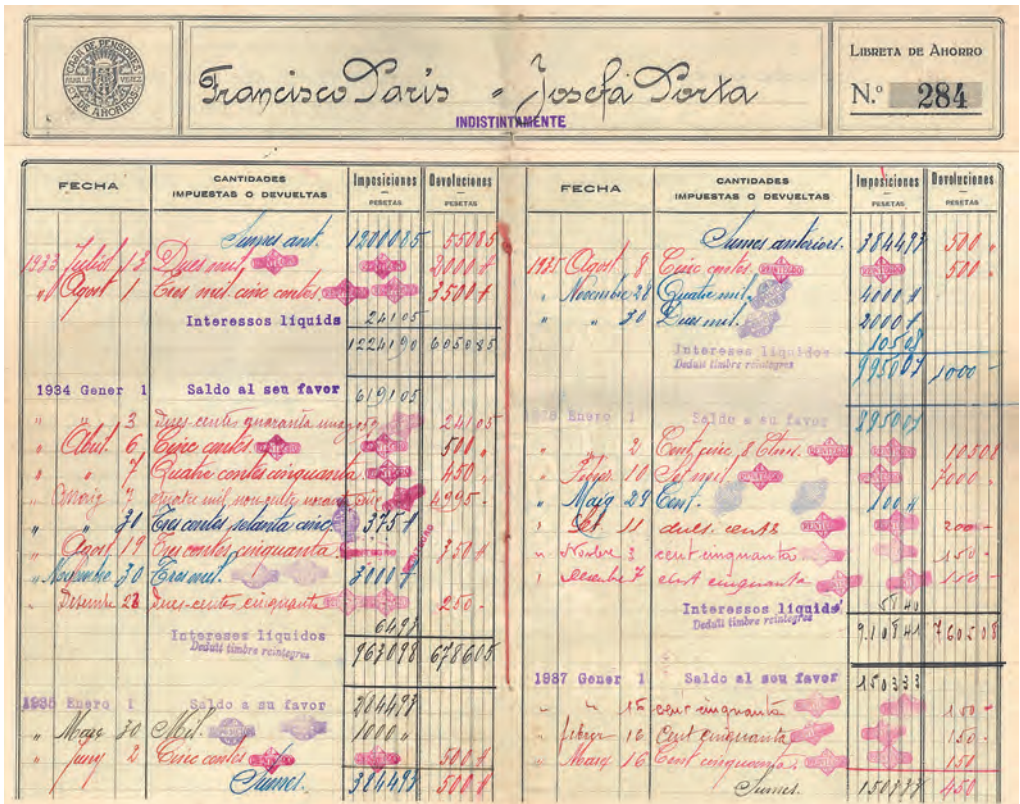 CAJA DE PENSIONES
Y DE AHORROS
Francisco París - Josefa Porta
INDISTINTAMENTE
LIBRETA DE AHORRO
N.º 284
FECHA
CANTIDADES IMPUESTAS O DEVUELTAS
Imposiciones PESETAS
Devoluciones PESETAS
Sumes ant. 1200085 55085
1933 Juliol 13 Dues mil 2000
" Agost 1 Tres mil cinc centes. 3500
Interessos líquids 24105
1224190 605085
1934 Gener 1 Saldo al seu favor 619105
" " 3 dues-centes quaranta una 24105
" Abril. 6 Cinc centes 500
" " 7 Quatre centes cinquanta 450 -
" Maig 7 4995 -
" " 30 Tres centes setanta cinc 375
" Agost 19 Tres centes cinquanta 350
" Novembre 30 Tres mil. 3000
" Desembre 28 dues-centes cinquanta 250 -
Intereses líquidos 6493
Deduït timbre reintegres
963098 678605
1935 Enero 1 Saldo a su favor 284493
" Març 30 Mil. 1000
" Juny 2 Cinc centes 500
Sumes. 384493 500
FECHA
CANTIDADES IMPUESTAS O DEVUELTAS
Imposiciones PESETAS
Devoluciones PESETAS
Sumes anteriors. 384493 500
1935 Agost. 8 Cinc centes 500
" Novembre 28 Quatre mil. 4000
" " 30 Dues mil. 2000
Intereses líquidos 10508
Deduït timbre reintegres
995001 1000 -
Enero 1 Saldo a su favor 895001
" " 2 Cent cinc, 8 Ctms. 10508
" Febrer. 10 Set mil 7000
" Maig 29 Cent. 100
" Set 11 dues cents 200 -
" Novbre 3 cent cinquanta 150 -
" Decembre 7 cent cinquanta 150 -
Interessos líquids 5840
Deduït timbre reintegres
910841 760508
1937 Gener 1 Saldo al seu favor 150333
" " 15 cent cinquanta 150 -
" febrer 16 Cent cinquanta 150 -
" Març 16 Cent cinquanta. 150
Sumes. 150333 450